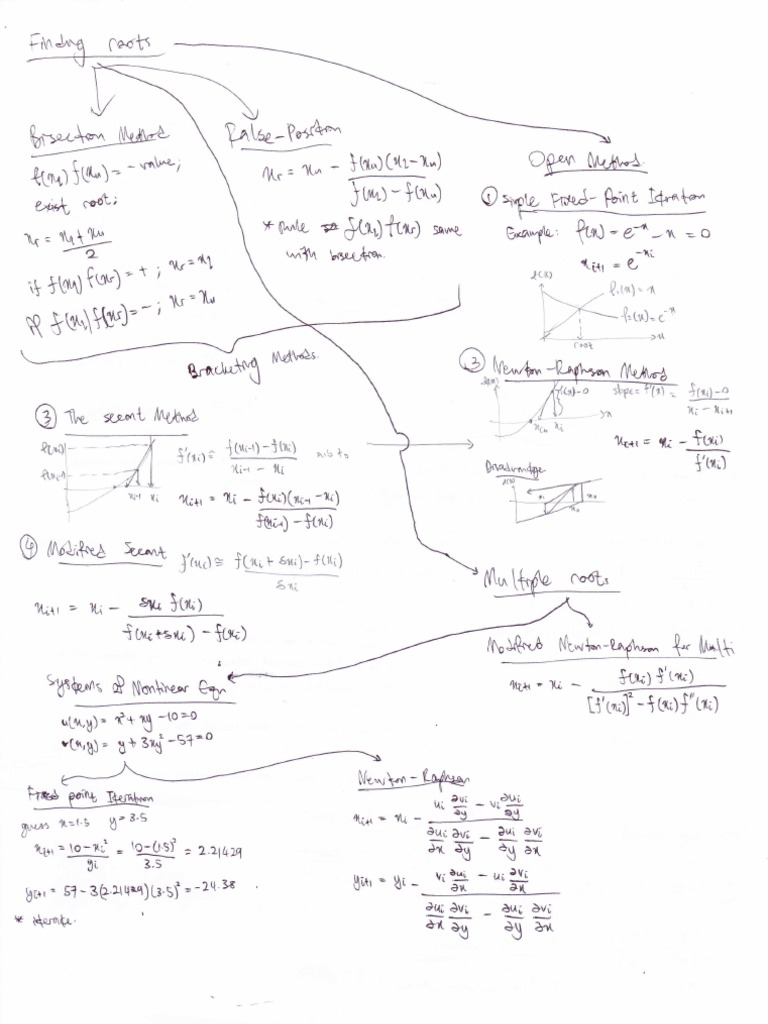 Finding roots
Bisection Method
f(x₁) f(xᵤ) = - value;
exist root;
xᵣ = (x₁ + xᵤ)/2
if f(x₁) f(xᵣ) = + ; xᵣ = x₁
if f(x₁) f(xᵣ) = - ; xᵣ = xᵤ
False-Position
xᵣ = xᵤ - f(xᵤ)(x₁ - xᵤ) / (f(x₁) - f(xᵤ))
* rule f(x₁) f(xᵣ) same
with bisection.
Bracketing Methods.
Open Method
① Simple Fixed-Point Itration
Example: f(x) = e⁻ˣ - x = 0
xᵢ₊₁ = e^(-xᵢ)
f(x)
f₁(x) = x
f₂(x) = e⁻ˣ
x
root
3 Newton-Raphson Method
f(x)
f(xᵢ)-0
slope = f'(x) = (f(xᵢ) - 0) / (xᵢ - xᵢ₊₁)
x
xᵢ₊₁ xᵢ
xᵢ₊₁ = xᵢ - f(xᵢ) / f'(xᵢ)
Disadvantage
f(x)
x₁ x₀
③ The secant Method
f(xᵢ)
f(xᵢ₋₁)
xᵢ₋₁ xᵢ
f'(xᵢ) ≅ (f(xᵢ₋₁) - f(xᵢ)) / (xᵢ₋₁ - xᵢ) sub to
xᵢ₊₁ = xᵢ - f(xᵢ)(xᵢ₋₁ - xᵢ) / (f(xᵢ₋₁) - f(xᵢ))
④ Modified Secant f'(xᵢ) ≅ (f(xᵢ + δxᵢ) - f(xᵢ)) / δxᵢ
xᵢ₊₁ = xᵢ - δxᵢ f(xᵢ) / (f(xᵢ + δxᵢ) - f(xᵢ))
Multiple roots
Modified Newton-Raphson for Multi
xᵢ₊₁ = xᵢ - f(xᵢ) f'(xᵢ) / ([f'(xᵢ)]² - f(xᵢ) f''(xᵢ))
Systems of Nonlinear Eqn
u(x,y) = x² + xy - 10 = 0
v(x,y) = y + 3xy² - 57 = 0
Fixed point Iteration
guess x = 1.5 y = 3.5
xᵢ₊₁ = (10 - xᵢ²)/yᵢ = (10 - (1.5)²)/3.5 = 2.21429
yᵢ₊₁ = 57 - 3(2.21429)(3.5)² = -24.38
* iterate.
Newton-Raphson
xᵢ₊₁ = xᵢ - (uᵢ ∂vᵢ/∂y - vᵢ ∂uᵢ/∂y) / (∂uᵢ/∂x ∂vᵢ/∂y - ∂uᵢ/∂y ∂vᵢ/∂x)
yᵢ₊₁ = yᵢ - (vᵢ ∂uᵢ/∂x - uᵢ ∂vᵢ/∂x) / (∂uᵢ/∂x ∂vᵢ/∂y - ∂uᵢ/∂y ∂vᵢ/∂x)